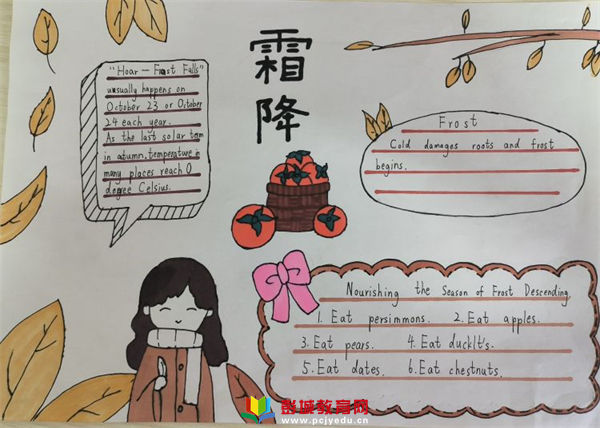 霜降
"Hoar-Frost Falls"
usually happens on
October 23 or October
24 each year.
As the last solar term
in autumn, temperature in
many places reach 0
degree Celsius.
Frost
Cold damages roots and frost
begins.
Nourishing the Season of Frost Descending
1. Eat persimmons. 2. Eat apples.
3. Eat pears. 4. Eat ducklt's.
5. Eat dates. 6. Eat chestnuts.
彭城教育网
www.pcjyedu.cn